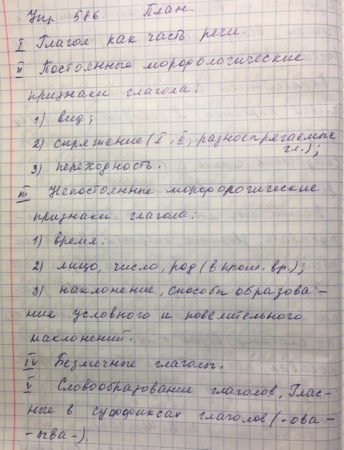 Упр. 586. План.
I Глагол как часть речи.
II Постоянные морфологические
признаки глагола:
1) вид;
2) спряжение (I, II, разноспрягаемые
гл.);
3) переходность.
III Непостоянные морфорогические
признаки глагола:
1) время:
2) лицо, число, род (в прош. вр.);
3) наклонение, способы образова-
ние условного и повелительного
наклонений.
IV Безличные глаголы.
V Словообразование глаголов. Глас-
ные в суффиксах глаголов (-ова-
-ыва-).